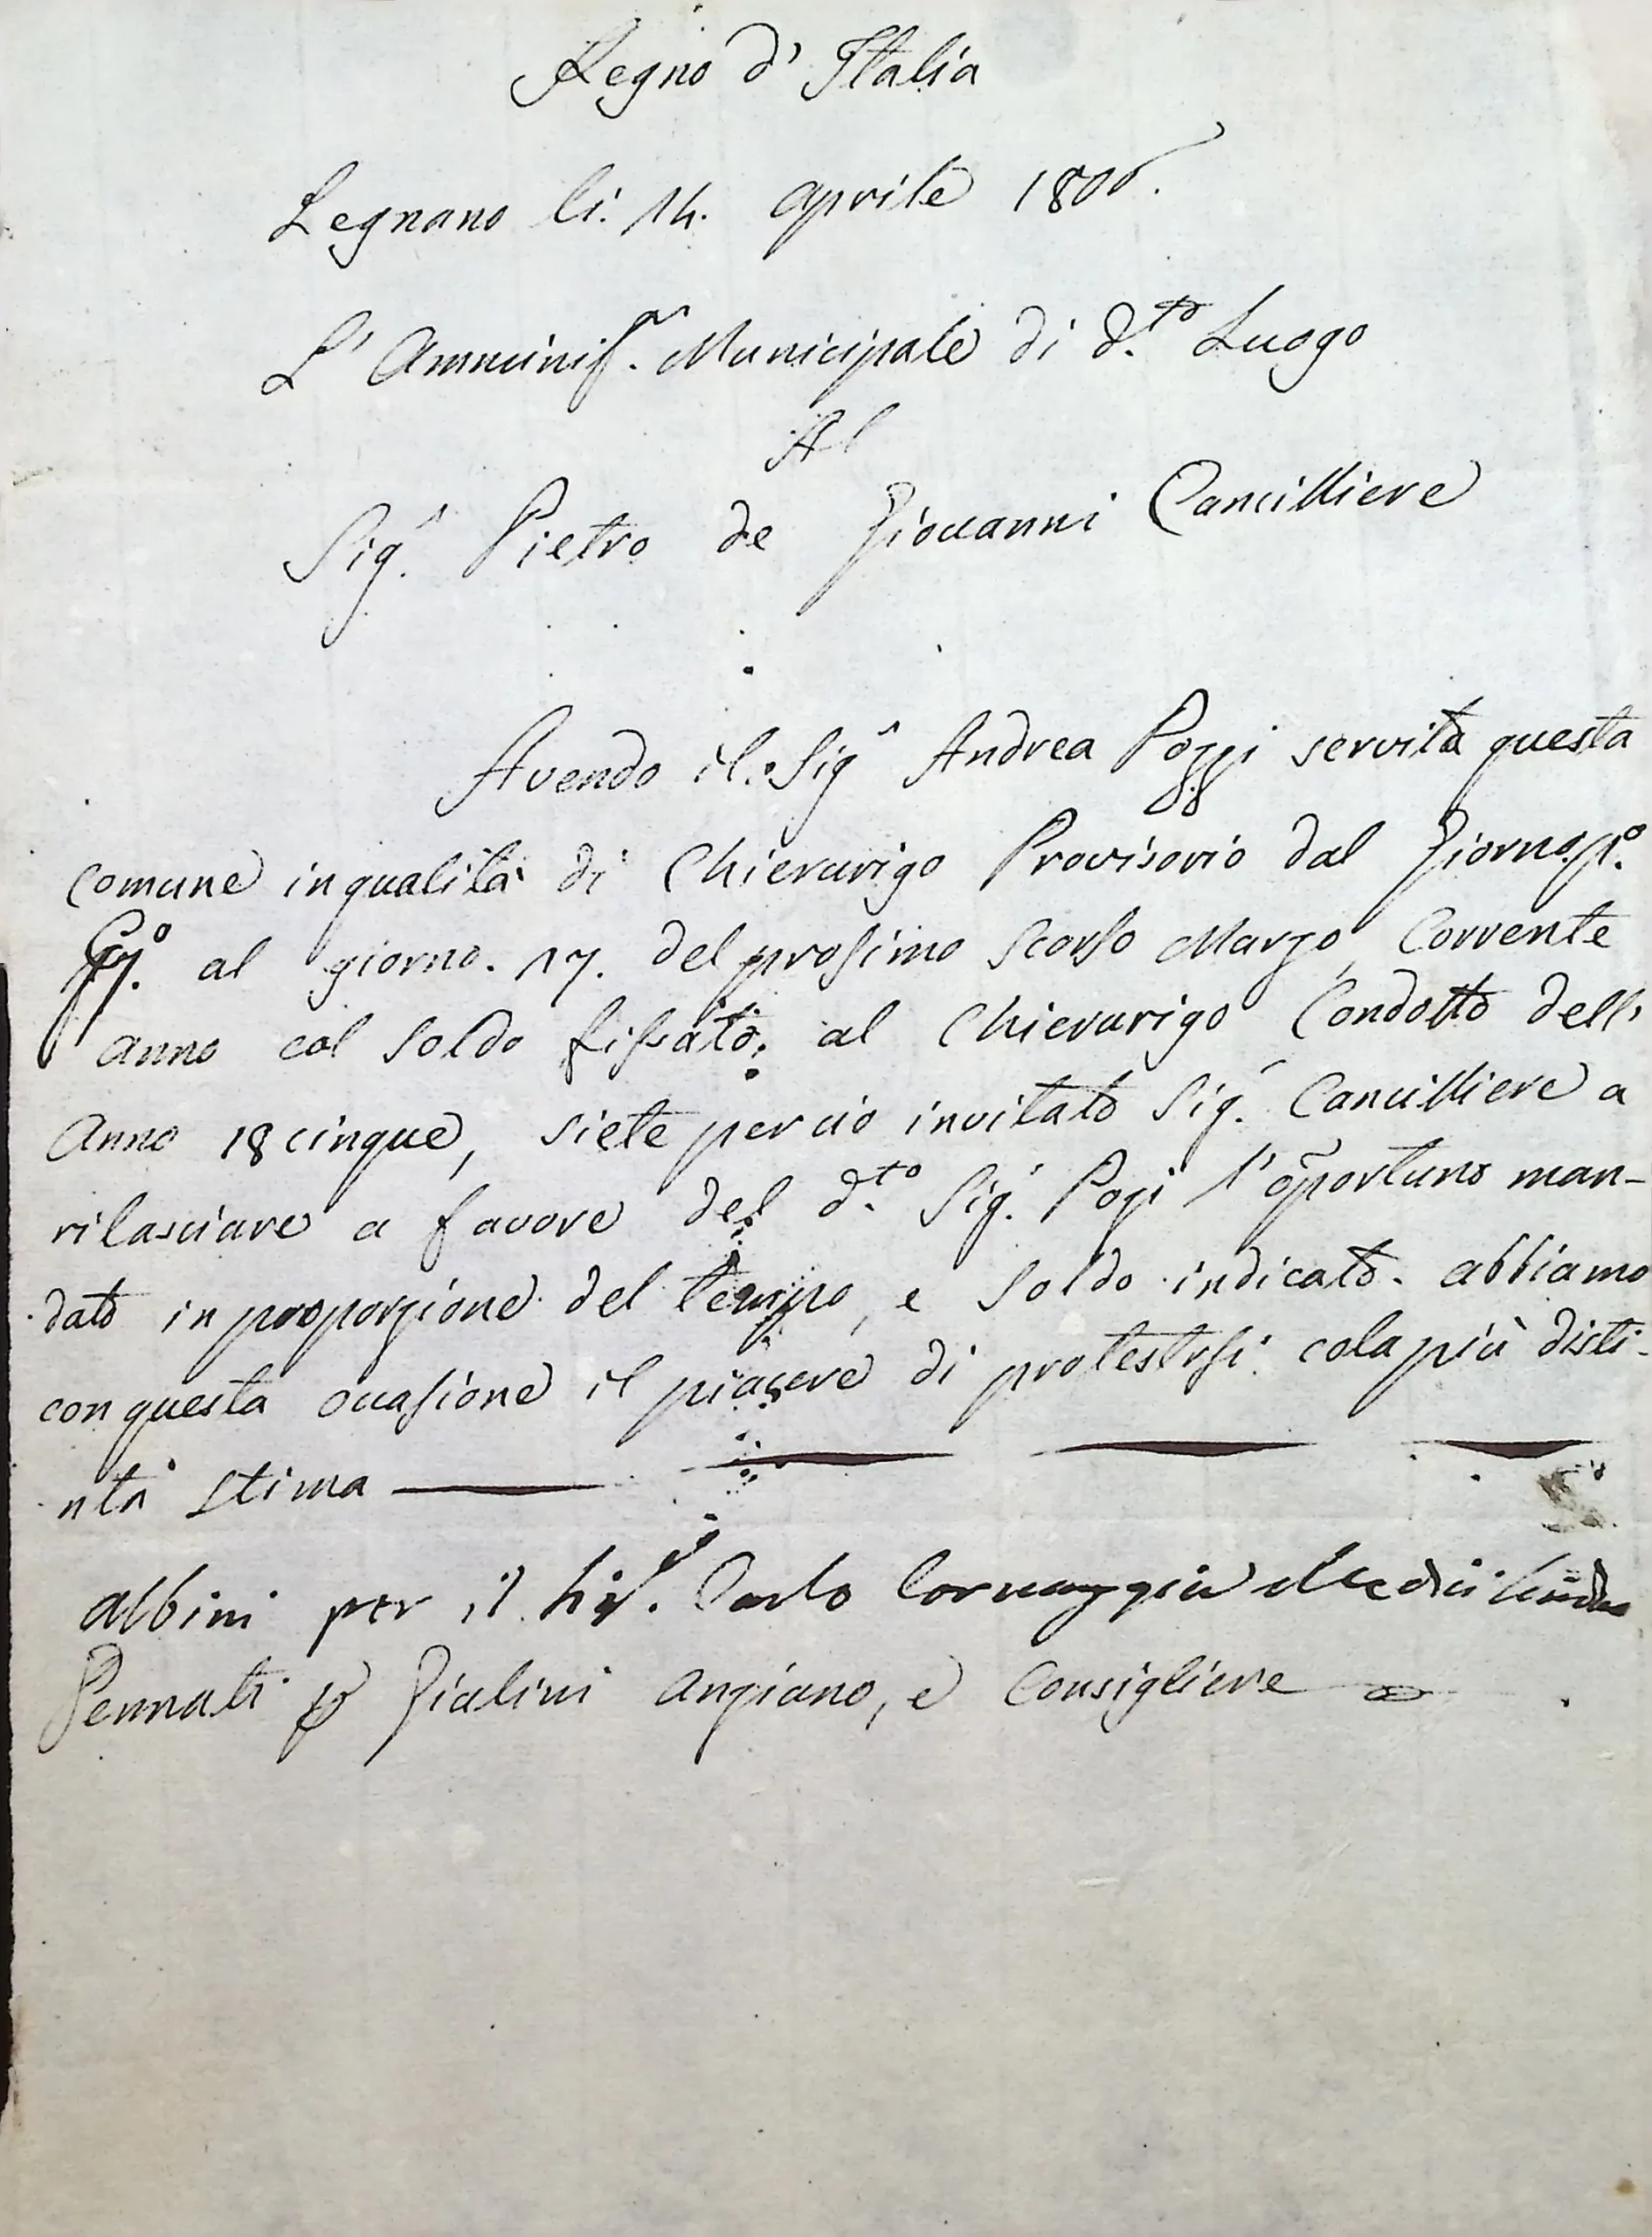 Regno d'Italia
Legnano li. 14. Aprile 1806.
L'Amminis.ne Municipale di d.to Luogo
Al
Sig.r Pietro de Giovanni Cancilliere
Avendo il Sig.r Andrea Pozzi servita questa
comune in qualità di Chierurigo Provisorio dal Giorno p.o
al giorno. 17. del prossimo scorso Marzo, Corrente
anno col soldo fissato al Chierurigo Condotto dell'
Anno 18cinque, siete per ciò invitato Sig.r Cancilliere a
rilasciare a favore del d.to Sig.r Pozi l'oportuno man-
dato in proporzione del tempo, e soldo indicato. abbiamo
con questa occasione il piacere di protestrsi cola più disti-
nta stima
Albini per il Carlo Cornaggia Medici
Pennati Gialini Anziano, e Consigliere